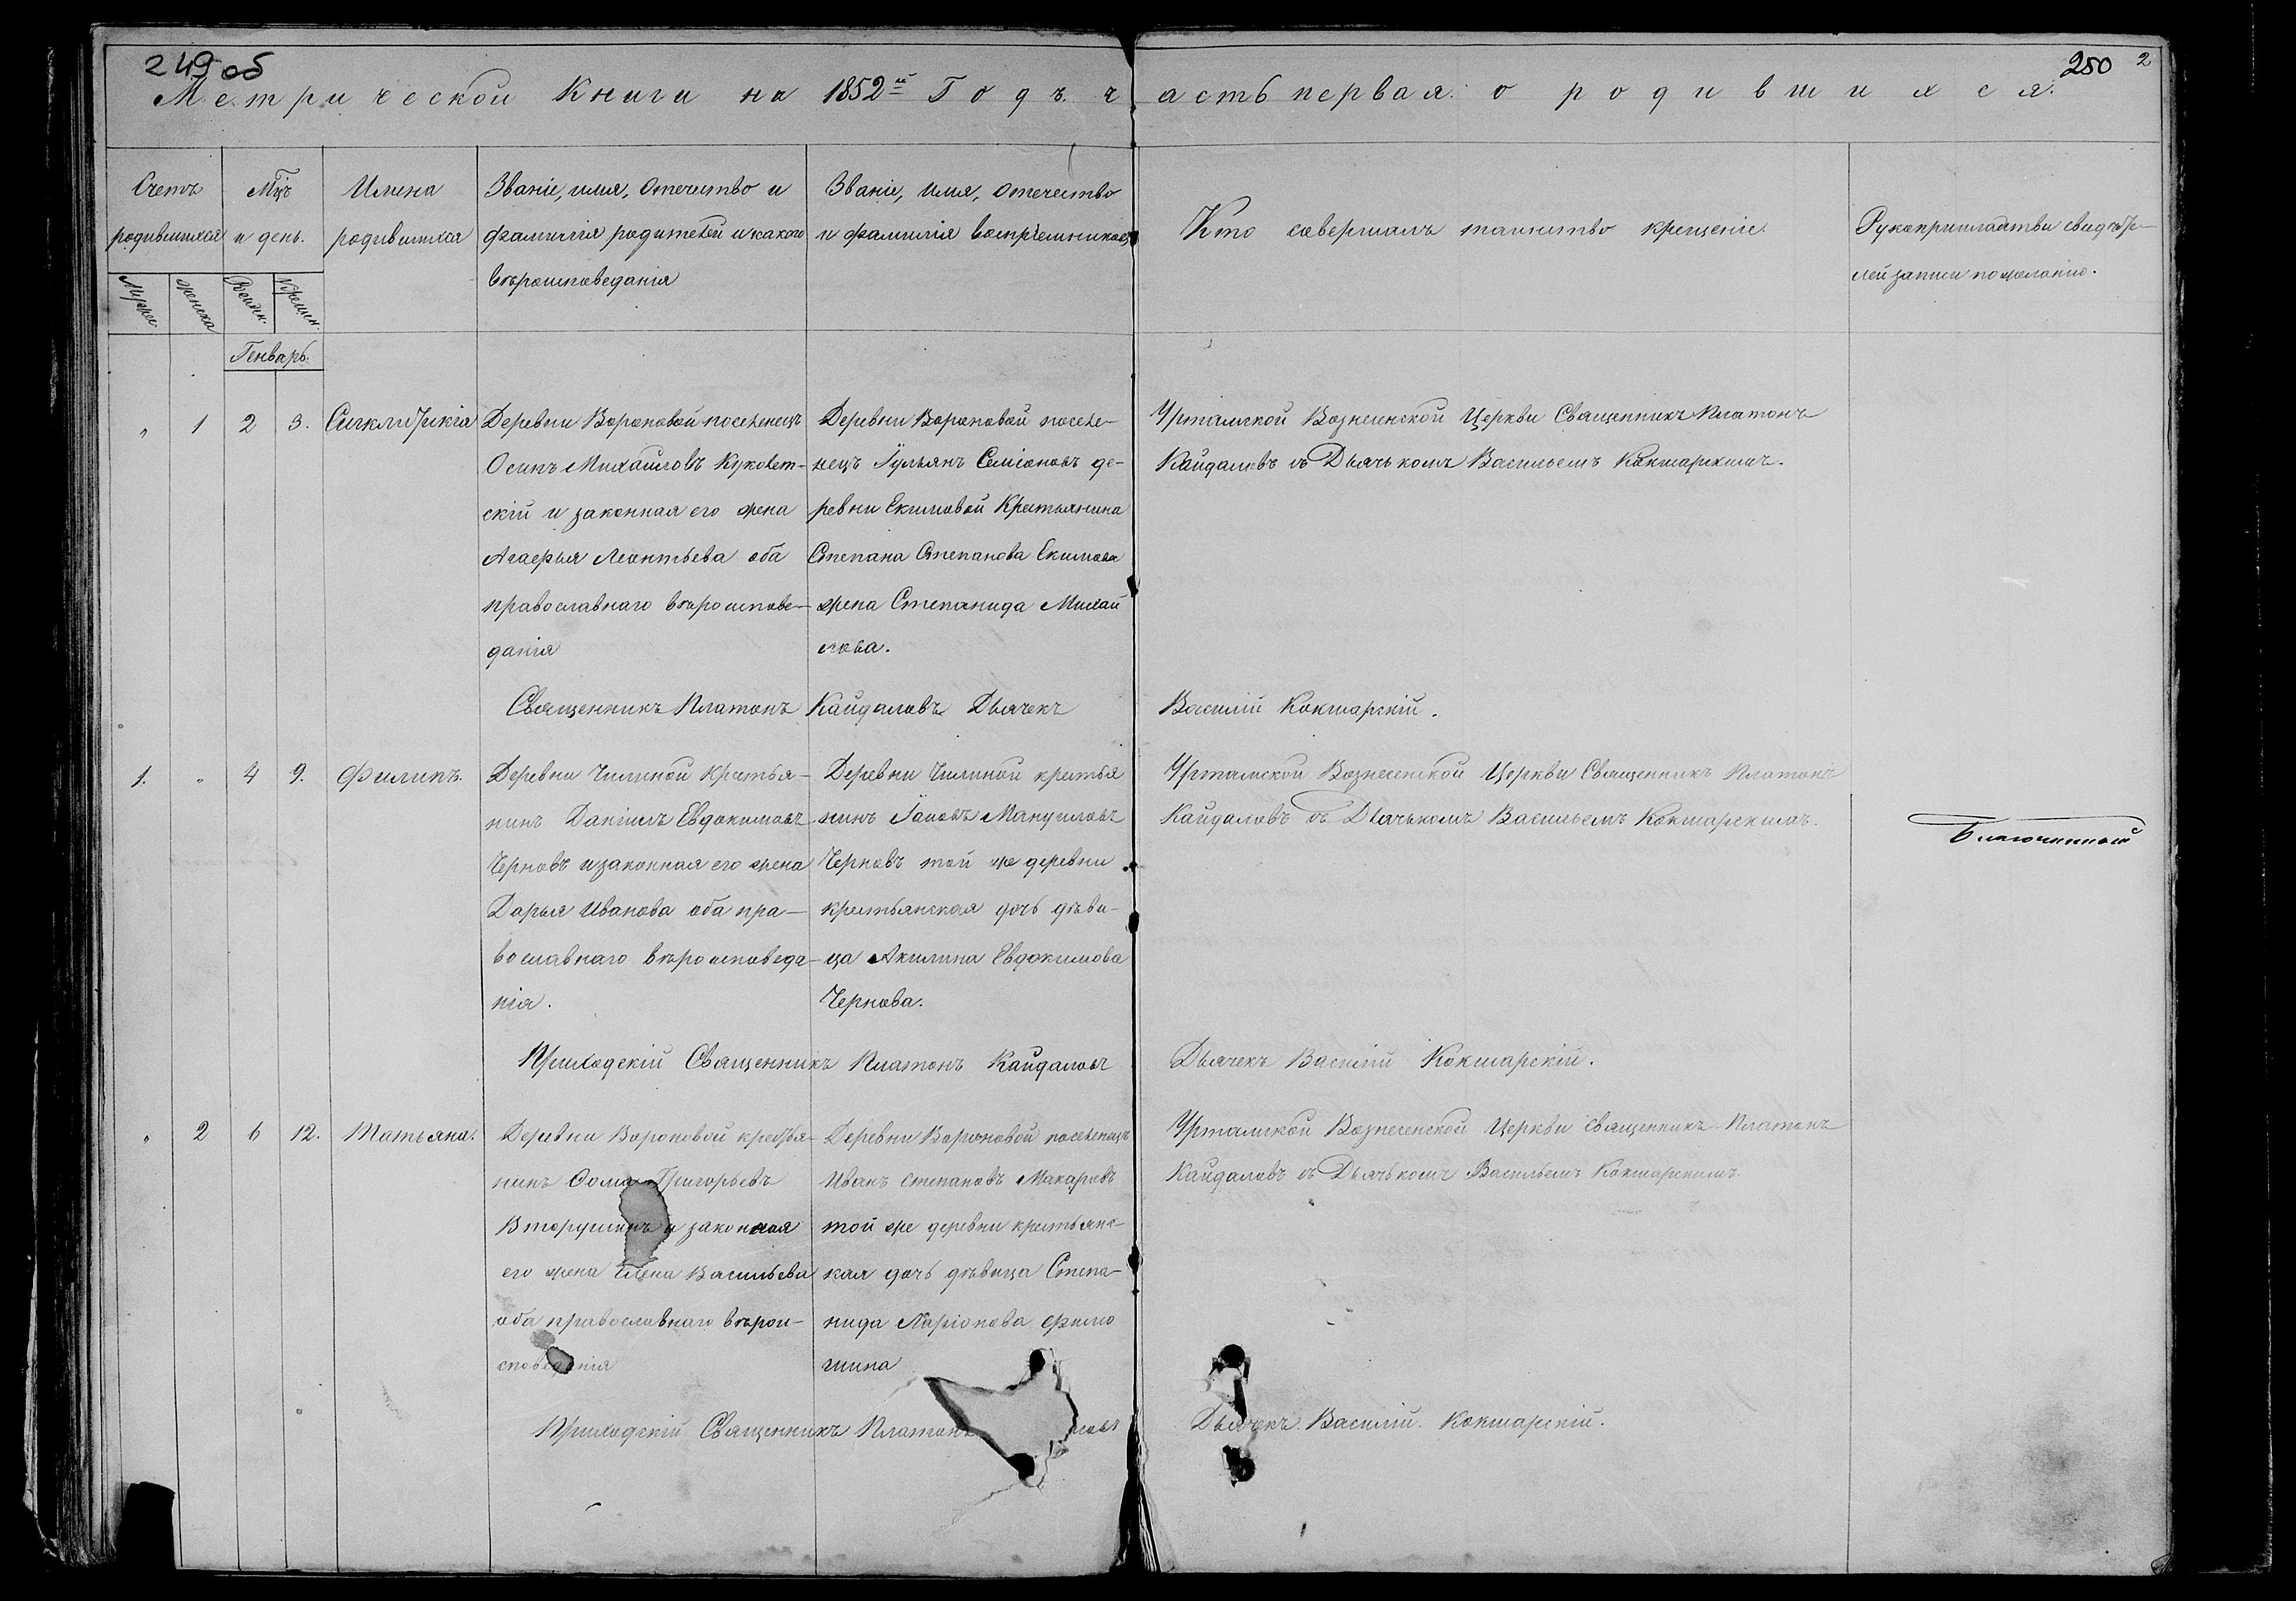 249 об
250 2
Метрической Книги на 1852й Годъ часть первая о родившихся.
Счетъ родившихся
Мцъ и день.
Имена родившихся
Званіе, имя, Отечество и
фамилія родителей и какого
вѣроисповеданія
Званіе, Имя, Отечество
и фамилія воспріемниковъ
Кто совершалъ таинство крещеніе.
Рукоприкладства свидѣте-
лей записи по желанію.
Мужес
женска
Рожден.
Крещен.
Генварь.
" 1 2 3. Синклитикія
Деревни Вороновой поселенецъ
Осипъ Михайловъ Куколет-
скій и законная его жена
Агафья Леонтьева оба
православнаго вѣроиспове-
данія
Деревни Вороновой поселе-
нецъ Іульянъ Семіоновъ де-
ревни Екимовой Крестьянина
Степана Степанова Екимова
жена Степанида Михай
лова.
Уртамской Вознесенской Церкви Священникъ Платонъ
Кайдаловъ съ Дьячькомъ Васильемъ Кокшарскимъ.
Священникъ Платонъ Кайдаловъ Дьячекъ Василій Кокшарскій.
1. " 4 9. Филипъ.
Деревни Чилиной Крестья-
нинъ Даніилъ Евдокимовъ
Черновъ и законная его жена
Дарья Иванова оба пра-
вославнаго вѣроисповеда-
нія.
Деревни Чилиной крестья
нинъ Іаковъ Мануиловъ
Черновъ той же деревни
крестьянская дочь дѣви-
ца Акилина Евдокимова
Чернова.
Уртамской Вознесенской Церкви Священникъ Платонъ
Кайдаловъ съ Дьячькомъ Васильемъ Кокшарскимъ.
Благочинный
Приходскій Священникъ Платонъ Кайдаловъ Дьячекъ Василій Кокшарскій.
" 2 6 12. Татьяна.
Деревни Вороновой крестья-
нинъ Фома Григорьевъ
Вторушинъ и законная
его жена Елена Васильева
оба православнаго вѣрои-
споведанія
Деревни Вороновой поселенецъ
Иванъ Степановъ Макаровъ
той же деревни крестьянс-
кая дочь дѣвица Степа-
нида Ларіонова Филю
шина
Уртамской Вознесенской Церкви Священникъ Платонъ
Кайдаловъ съ Дьячькомъ Васильемъ Кокшарскимъ
Приходскій Священникъ Платонъ ловъ Дьячекъ Василій Кокшарскій.